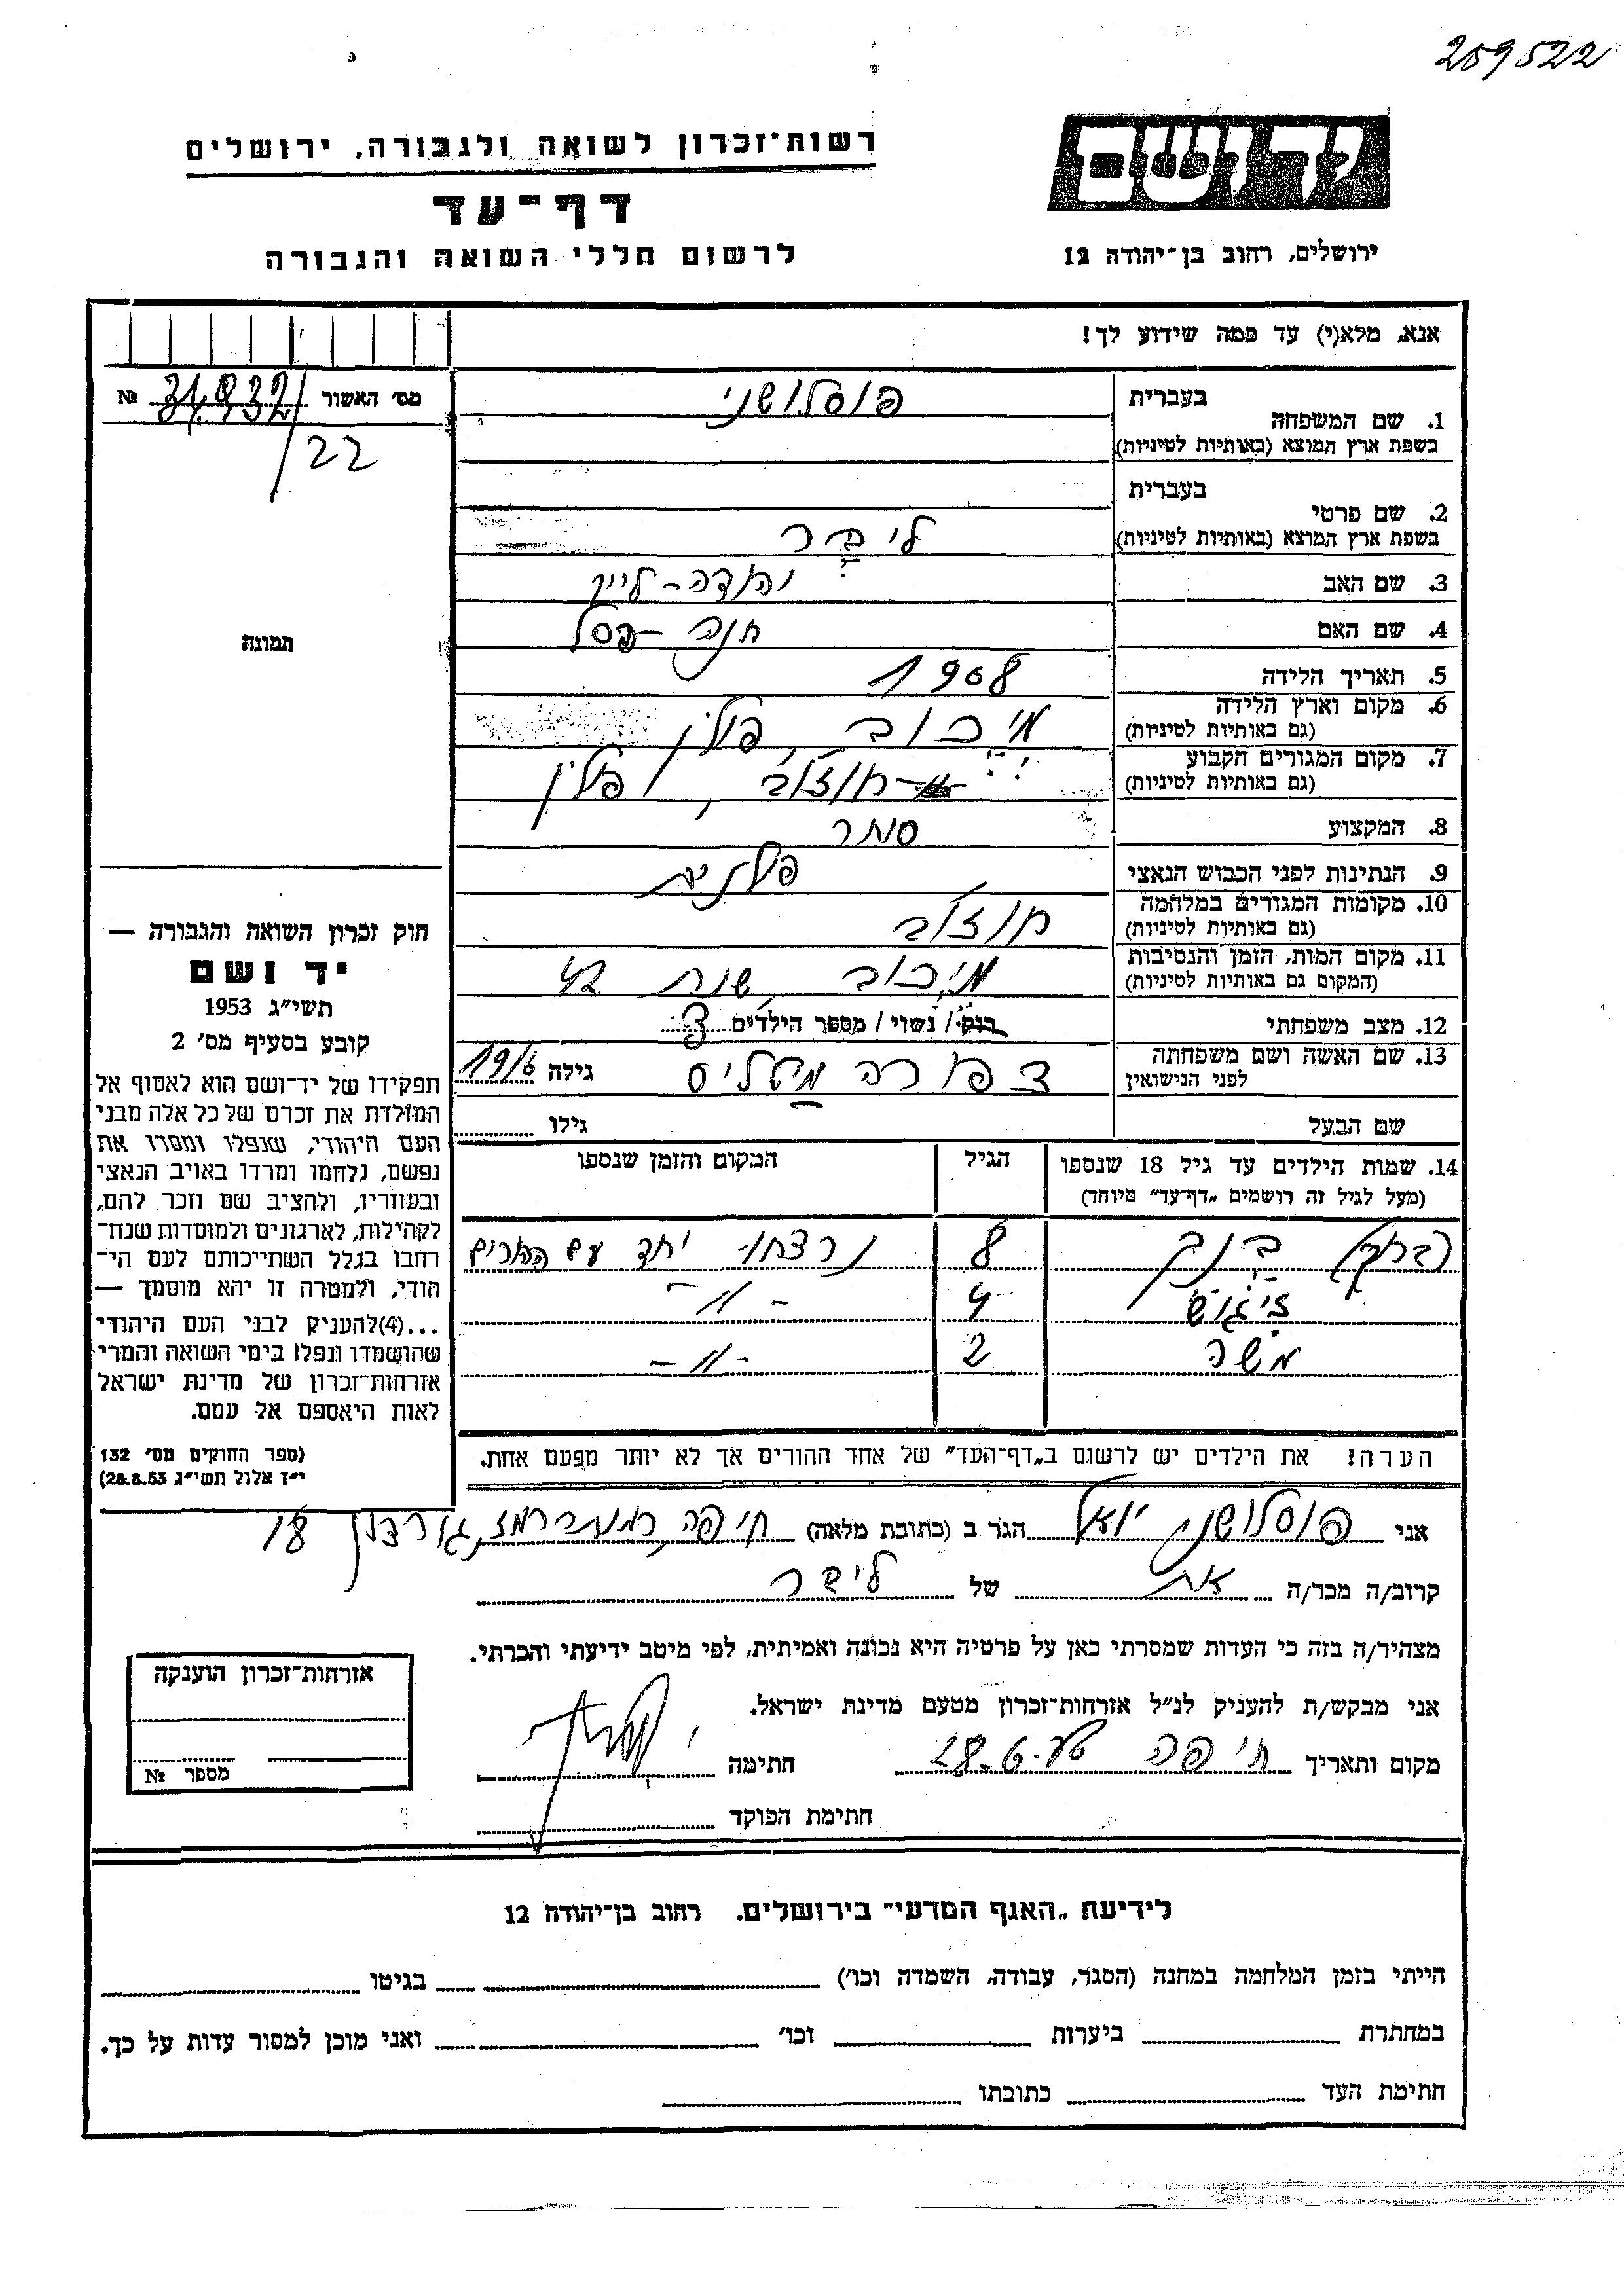 259522
יד ושם
רשות־זכרון לשואה ולגבורה, ירושלים
דף־עד
לרשום חללי השואה והגבורה
ירושלים, רחוב בן־יהודה 12
אנא, מלא(י) עד כמה שידוע לך!
מס׳ האשור № 31,932
/22
תמונה
1. שם המשפחה
בעברית פוסלושני
בשפת ארץ המוצא (באותיות לטיניות)
2. שם פרטי
בעברית
בשפת ארץ המוצא (באותיות לטיניות) ליבר
3. שם האב יהודה-לייב
4. שם האם חנה - פסל
5. תאריך הלידה 1908
6. מקום וארץ הלידה
(גם באותיות לטיניות) מיכוב פולין
7. מקום המגורים הקבוע
(גם באותיות לטיניות) פולין
8. המקצוע סוחר
9. הנתינות לפני הכבוש הנאצי פולנית
10. מקומות המגורים במלחמה
(גם באותיות לטיניות)
11. מקום המות, הזמן והנסיבות
(המקום גם באותיות לטיניות) מיכוב שנת 42
12. מצב משפחתי רוק / נשוי / מספר הילדים 3
13. שם האשה ושם משפחתה
לפני הנישואין צפורה גילה
שם הבעל גילו
14. שמות הילדים עד גיל 18 שנספו הגיל המקום והזמן שנספו
(מעל לגיל זה רושמים „דף־עד” מיוחד)
8 נרצחו יחד עם ההורים
4 -״-
משה 2 -״-
הערה! את הילדים יש לרשום ב„דף־העד” של אחד ההורים אך לא יותר מפעם אחת.
חוק זכרון השואה והגבורה —
יד ושם
תשי״ג 1953
קובע בסעיף מס׳ 2
תפקידו של יד־ושם הוא לאסוף אל
המולדת את זכרם של כל אלה מבני
העם היהודי, שנפלו ומסרו את
נפשם, נלחמו ומרדו באויב הנאצי
ובעוזריו, ולהציב שם וזכר להם,
לקהילות, לארגונים ולמוסדות שנח־
רבו בגלל השתייכותם לעם הי־
הודי, ולמטרה זו יהא מוסמך —
...(4)להעניק לבני העם היהודי
שהושמדו ונפלו בימי השואה והמרי
אזרחות־זכרון של מדינת ישראל
לאות היאספם אל עמם.
(ספר החוקים מס׳ 132
י״ז אלול תשי״ג 28.8.53)
אני פוסלושני יואל הגר ב (כתובת מלאה) חיפה, גורדון 18
קרוב/ה מכר/ה אח של ליבר
מצהיר/ה בזה כי העדות שמסרתי כאן על פרטיה היא נכונה ואמיתית, לפי מיטב ידיעתי והכרתי.
אני מבקש/ת להעניק לנ״ל אזרחות־זכרון מטעם מדינת ישראל.
מקום ותאריך חיפה חתימה
חתימת הפוקד
אזרחות־זכרון הוענקה
מספר №
לידיעת „האגף המדעי” בירושלים. רחוב בן־יהודה 12
הייתי בזמן המלחמה במחנה (הסגר, עבודה, השמדה וכו׳) בגיטו
במחתרת ביערות וכו׳ ואני מוכן למסור עדות על כך.
חתימת העד כתובתו